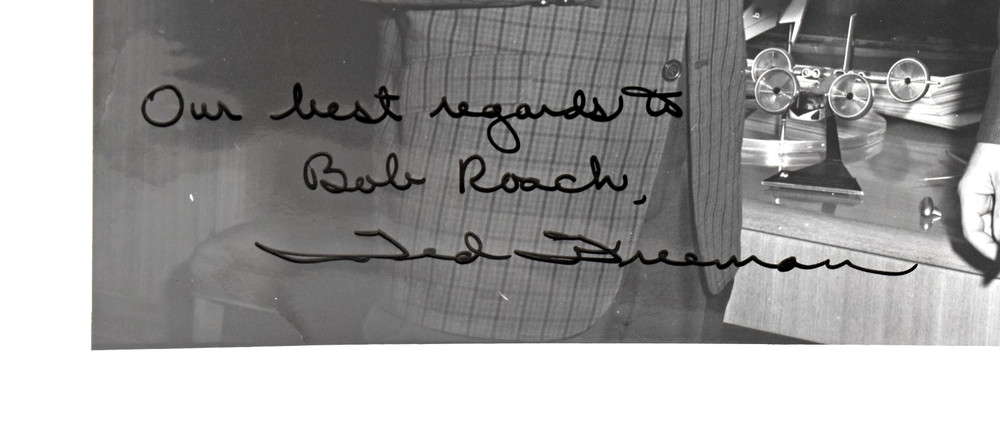 Our best regards to
Bob Roach,
Ted Freeman